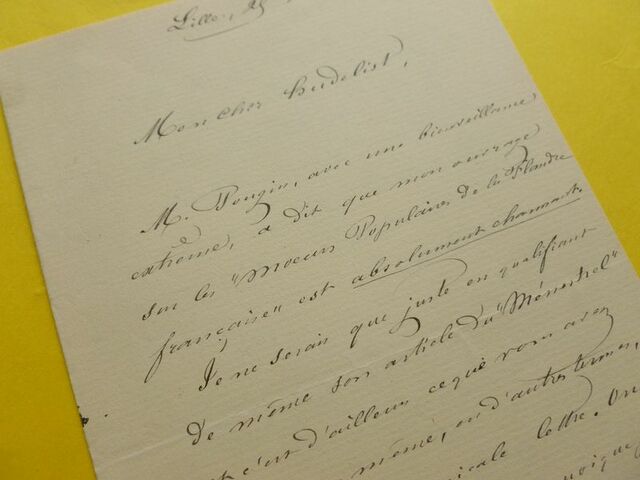 Lille, 25
Mon cher Hudelist,
M. Pougin, avec une bienveillance
extrême, a dit que mon ouvrage
sur les "Moeurs Populaires de la Flandre
française" est absolument charmant.
Je ne serais que juste en qualifiant
de même son article du "Ménestrel"
et c'est d'ailleurs ce que vous avez
même, en d'autres termes,
lettre. On